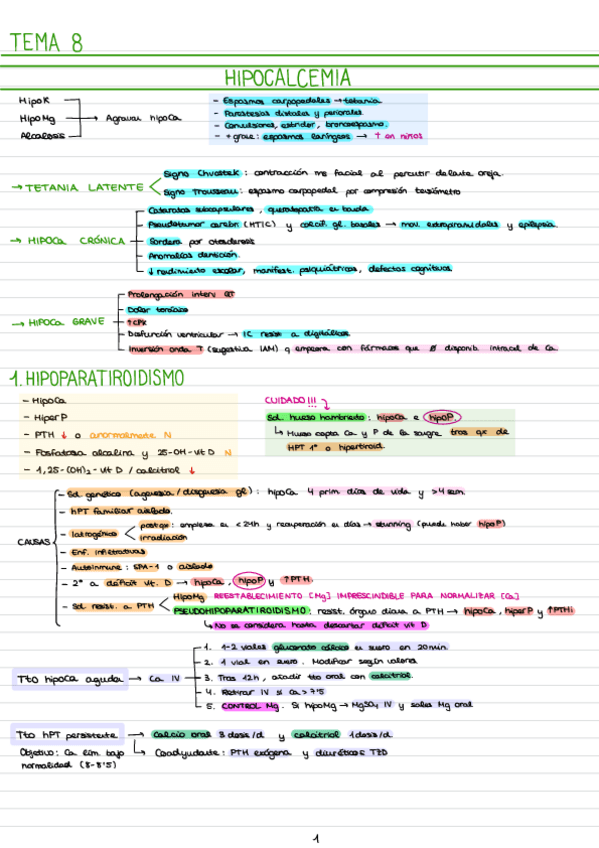 TEMA 8
HIPOCALCEMIA
HipoK
HipoMg → Agravar hipoCa
Alcalosis
- Espasmos carpopedales → tetania
- Parestesias distales y periorales
- Convulsiones, estridor, broncoespasmo.
- + grave: espasmos laríngeos → ↑ en niños
→ TETANIA LATENTE
Signo Chvostek: contracción me facial al percutir delante oreja.
Signo Trousseau: espasmo carpopedal por compresión tensiómetro
→ HIPOCa CRÓNICA
Cataratas subcapsulares, queratopatía en banda
Pseudotumor cerebri (HTIC) y calcif. gl. basales → mov. extrapiramidales y epilepsia.
Sordera por otosclerosis
Anomalías dentición.
↓ rendimiento escolar, manifest. psiquiátricas, defectos cognitivos.
→ HIPOCa GRAVE
Prolongación interv QT
Dolor torácico
↑CPK
Disfunción ventricular → IC resist a digitálicos
Inversión onda T (sugestiva IAM) q empeora con fármacos que ↓ disponib. intracel de Ca.
1. HIPOPARATIROIDISMO
- HipoCa
- HiperP
- PTH ↓ o anormalmente N
- Fosfatasa alcalina y 25-OH-vit D N
- 1,25-(OH)₂-vit D / calcitriol ↓
CUIDADO!!!
Sd. hueso hambriento: hipoCa e hipoP.
↳ Hueso capta Ca y P de la sangre tras qx de
HPT 1º o hipertiroid.
CAUSAS
- Sd. genético (agenesia / disgenesia gl.): hipoCa 4 prim días de vida y >4 sem.
- hPT familiar aislado.
- Iatrogénico
postqx: empieza en <24h y recuperación en días → stunning (puede haber hipoP)
irradiación
- Enf. infiltrativas
- Autoinmune: SPA-1 o aislado
- 2º a déficit vit. D → hipoCa, hipoP y ↑PTH
- Sd. resist. a PTH
HipoMg REESTABLECIMIENTO [Mg] IMPRESCINDIBLE PARA NORMALIZAR [Ca]
PSEUDOHIPOPARATIROIDISMO: resist. órgano diana a PTH → hipoCa, hiperP y ↑PTHi
↳ No se considera hasta descartar déficit vit D
Tto hipoCa aguda → Ca IV
1. 1-2 viales gluconato cálcico en suero en 20min.
2. 1 vial en suero. Modificar según valores
3. Tras 12h, añadir tto oral con calcitriol.
4. Retirar IV si Ca > 7'5
5. CONTROL Mg. Si hipoMg → MgSO₄ IV y sales Mg oral
Tto hPT persistente → Calcio oral 3 dosis/d y calcitriol 1 dosis/d.
Objetivo: Ca lím. bajo
normalidad (8-8'5)
↳ Coadyudante: PTH exógena y diuréticos TZD
1